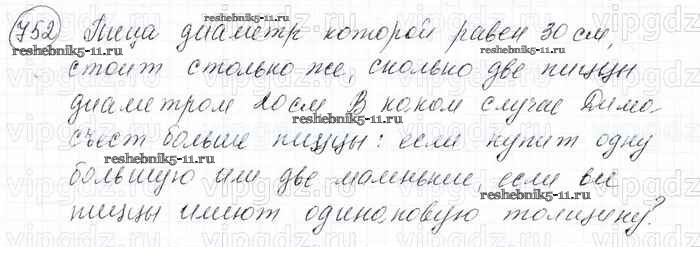 752 Пицца диаметр которой равен 30 см,
стоит столько же, сколько две пиццы
диаметром 20 см. В каком случае Дима
съест больше пиццы: если купит одну
большую или две маленькие, если все
пиццы имеют одинаковую толщину?
reshebnik5-11.ru
reshebnik5-11.ru
reshebnik5-11.ru
reshebnik5-11.ru
reshebnik5-11.ru
reshebnik5-11.ru